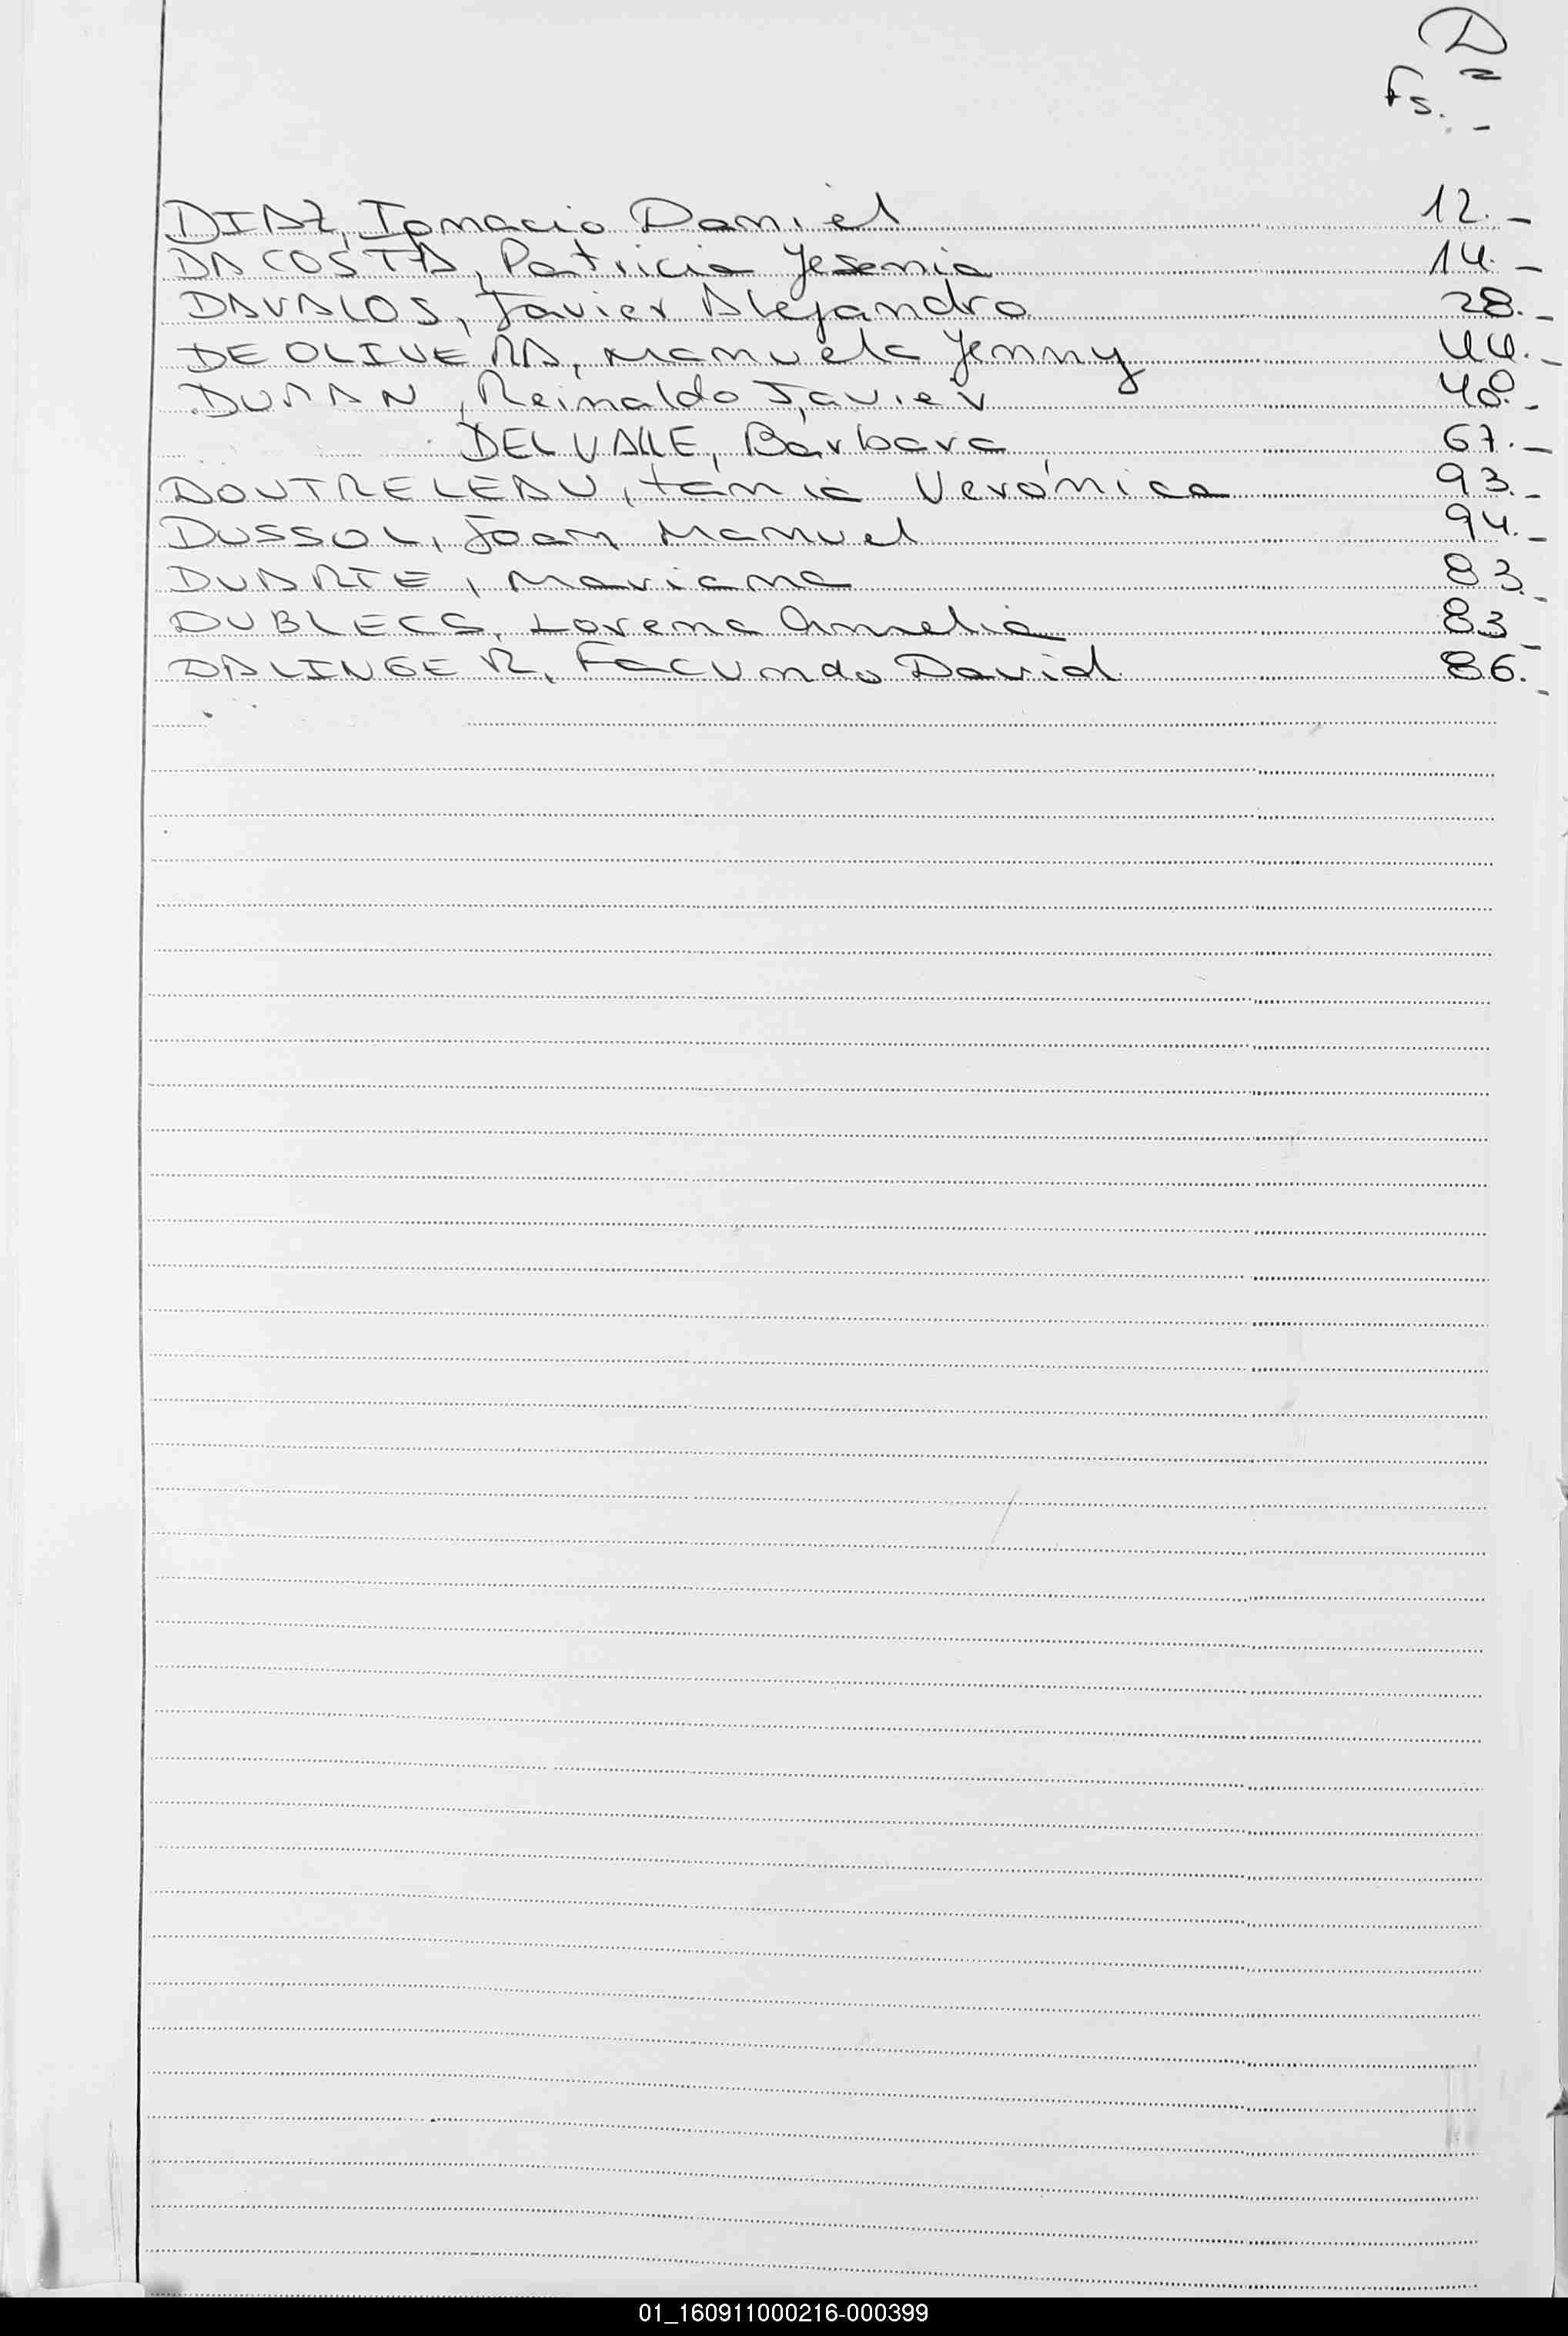 D
Fs. -
DIAZ, Ignacio Daniel 12.-
DA COSTA, Patricia Yesenia 14.-
DAVALOS, Javier Alejandro 28.-
DE OLIVERA, Manuela Jenny 44.-
DURAN, Reinaldo Javier 48.-
DELVALLE, Bárbara 67.-
DOUTRELEAU, tania Verónica 93.-
DUSSOL, Joan Manuel 94.-
DUARTE, Mariana 83.-
Lorena Amelia 83.-
DALINGER, Facundo David 86.-
01_160911000216-000399